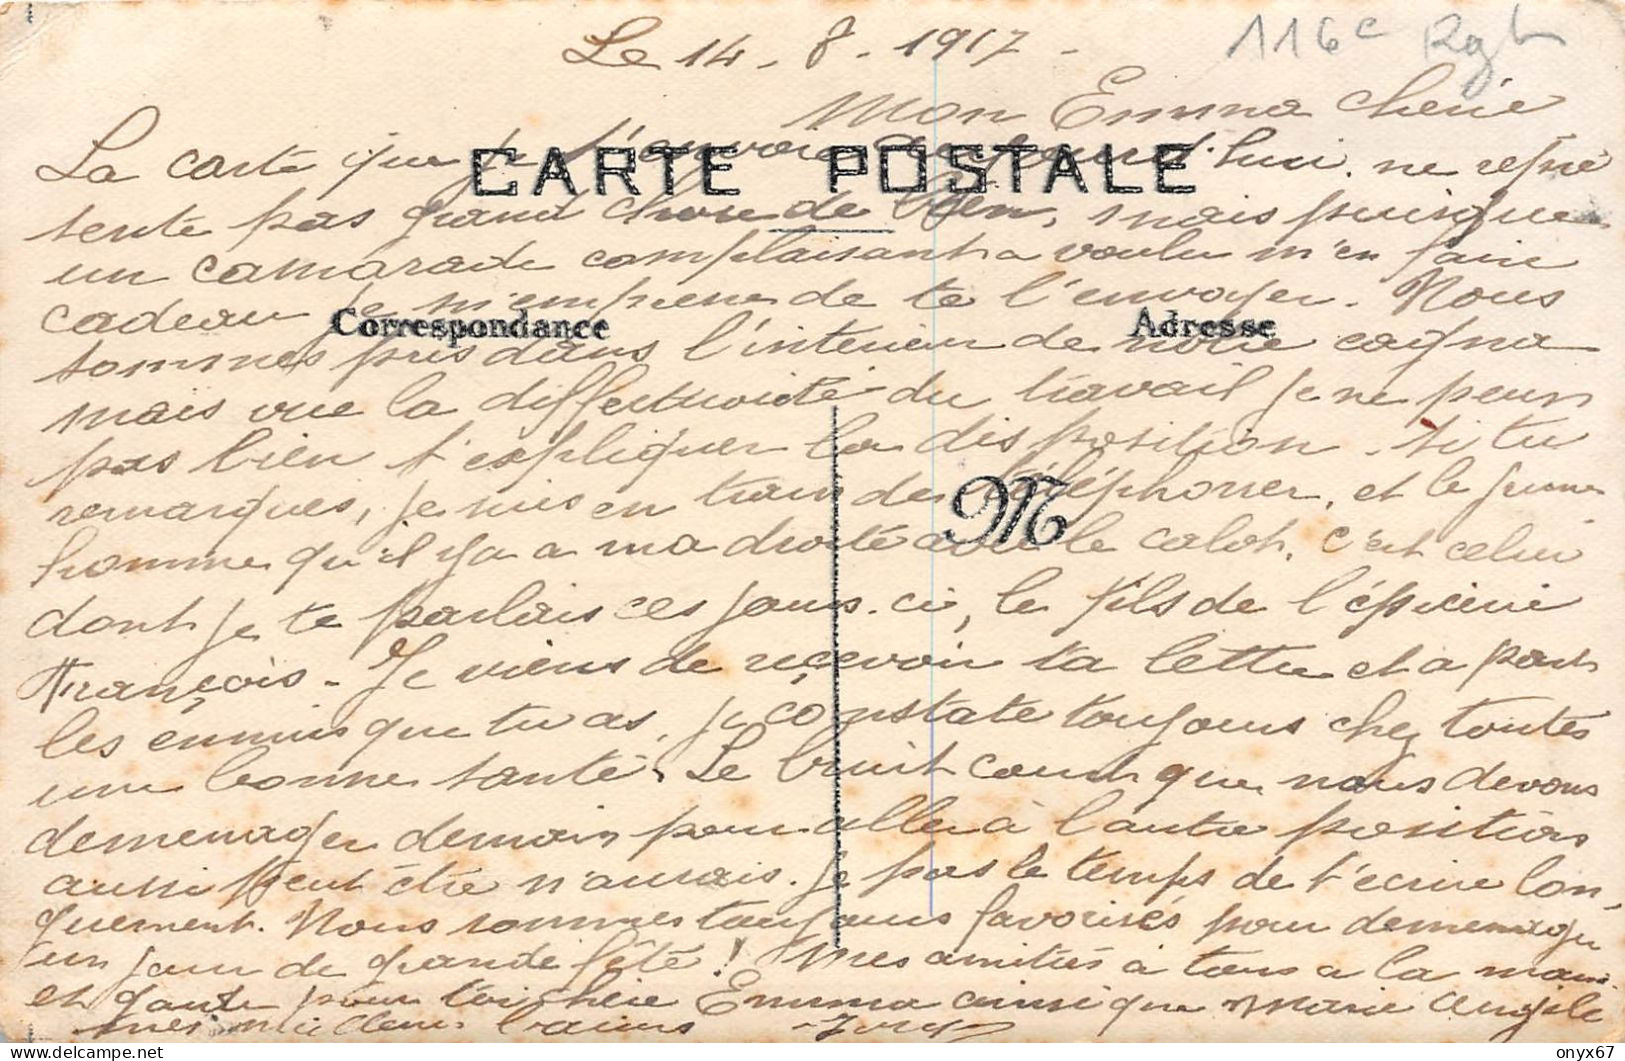 Le 14 - 8 - 1917 -
116e Rgt
Mon Emma cherie
CARTE POSTALE
La carte que je t'envoie aujourd'hui, ne repré
sente pas grand chose de bien, mais puisque
un camarade complaisant a voulu m'en faire
cadeau je m'empresse de te l'envoyer. Nous
Correspondance
Adresse
sommes pris dans l'interieur de notre cagna
mais vue la diffectuosité du travail je ne peux
pas bien t'expliquer la disposition. si tu
remarques, je suis en train de téléphoner, et le jeune
M
homme qu'il y a a ma droite avec le calot, c'est celui
dont je te parlais ces jours-ci, le fils de l'épicerie
François - Je viens de reçevoir ta lettre et a part
les ennuis que tu as, je çonstate toujours chez toutes
une bonne santé. Le bruit court que nous devons
demenager demain pour aller à l'autre position
aussi peut être n'aurais-je pas le temps de t'ecrire lon-
guement. Nous sommes toujours favorisés pour demenager
un jour de grande fête! Mes amitiés à tous a la maison
et garde pour toi chérie Emma ainsi que Marie Angèle
mes meilleurs baisers
onyx67